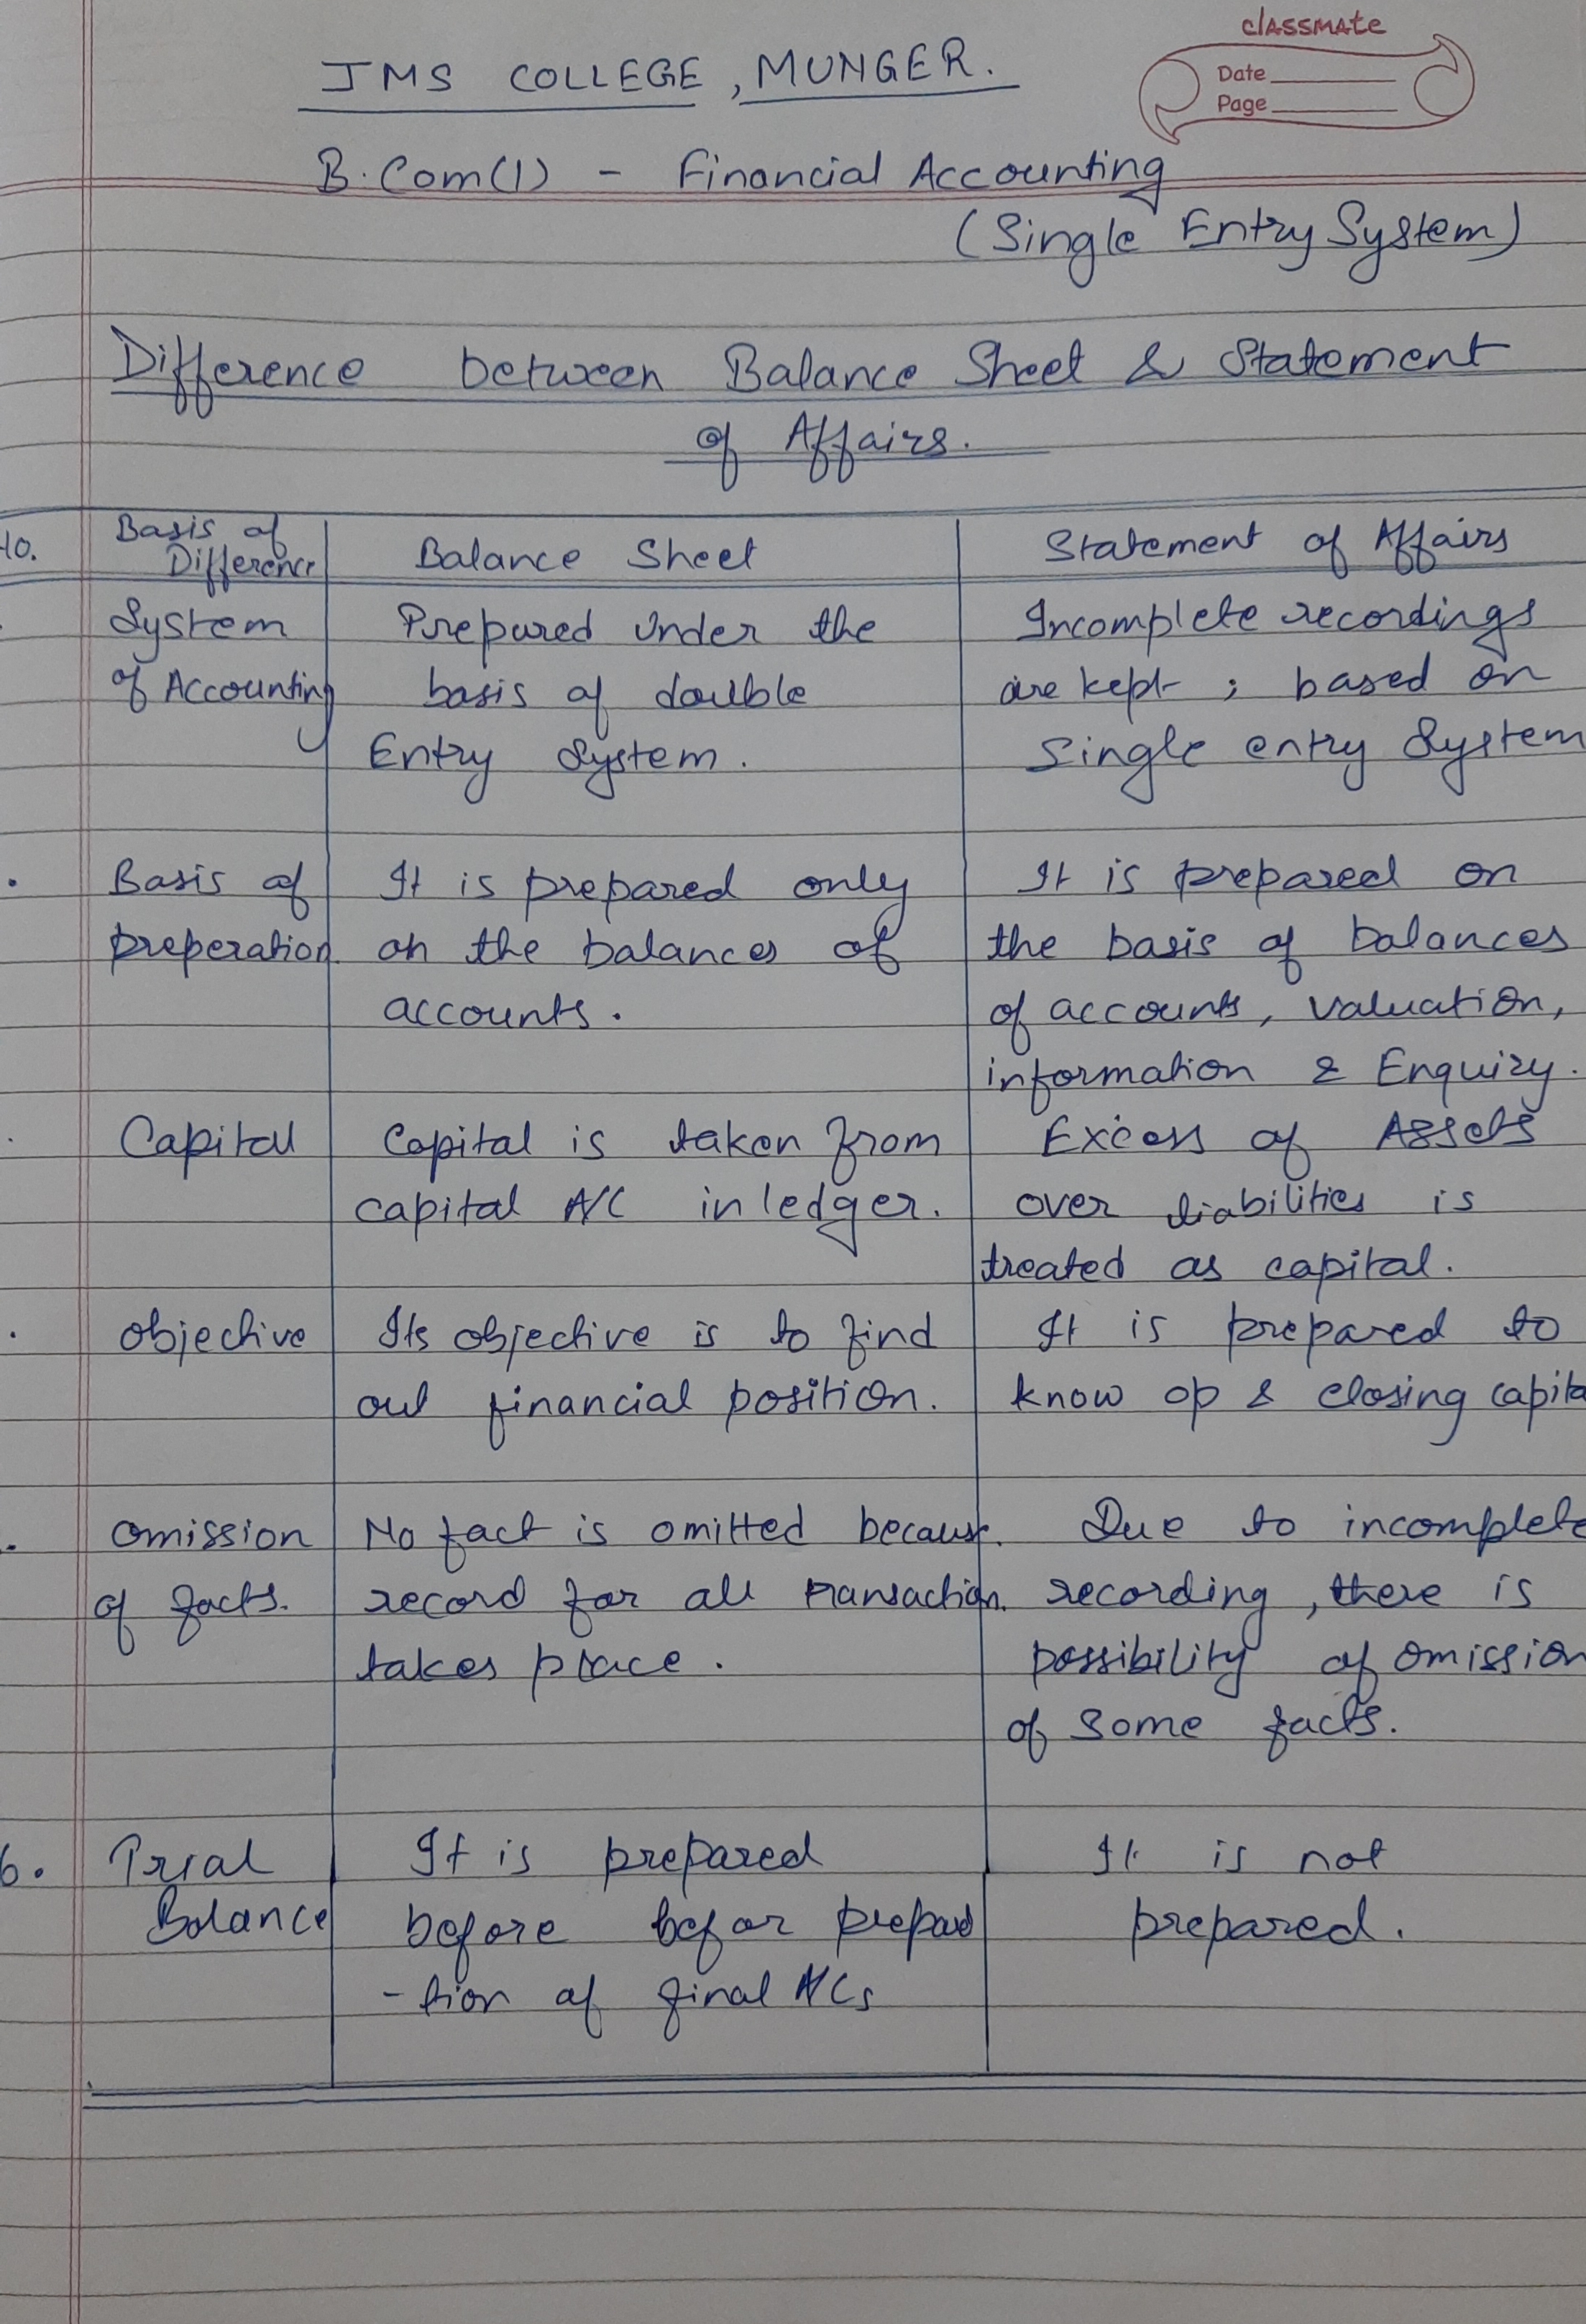 classmate
Date
Page
JMS COLLEGE, MUNGER.
B.Com(1) - Financial Accounting
(Single Entry System)
Difference between Balance Sheet & Statement
of Affairs.
Basis of
Difference
Balance Sheet
Statement of Affairs
System
of Accounting
Prepared Under the
basis of double
Entry System.
Incomplete recordings
are kept ; based on
Single entry System
Basis of
preperation
It is prepared only
on the balances of
accounts.
It is prepared on
the basis of balances
of accounts, valuation,
information & Enquiry.
Capital
Capital is taken from
capital A/C in ledger.
Excess of Assets
over liabilities is
treated as capital.
Objective
Its objective is to find
out financial position.
It is prepared to
know op & closing
Omission
of facts.
No fact is omitted because
record for all transaction.
takes place.
Due to incomplete
recording, there is
possibility of omission
of some facts.
6.
Trial
Balance
It is prepared
before befor
-tion of final A/Cs
It is not
prepared.